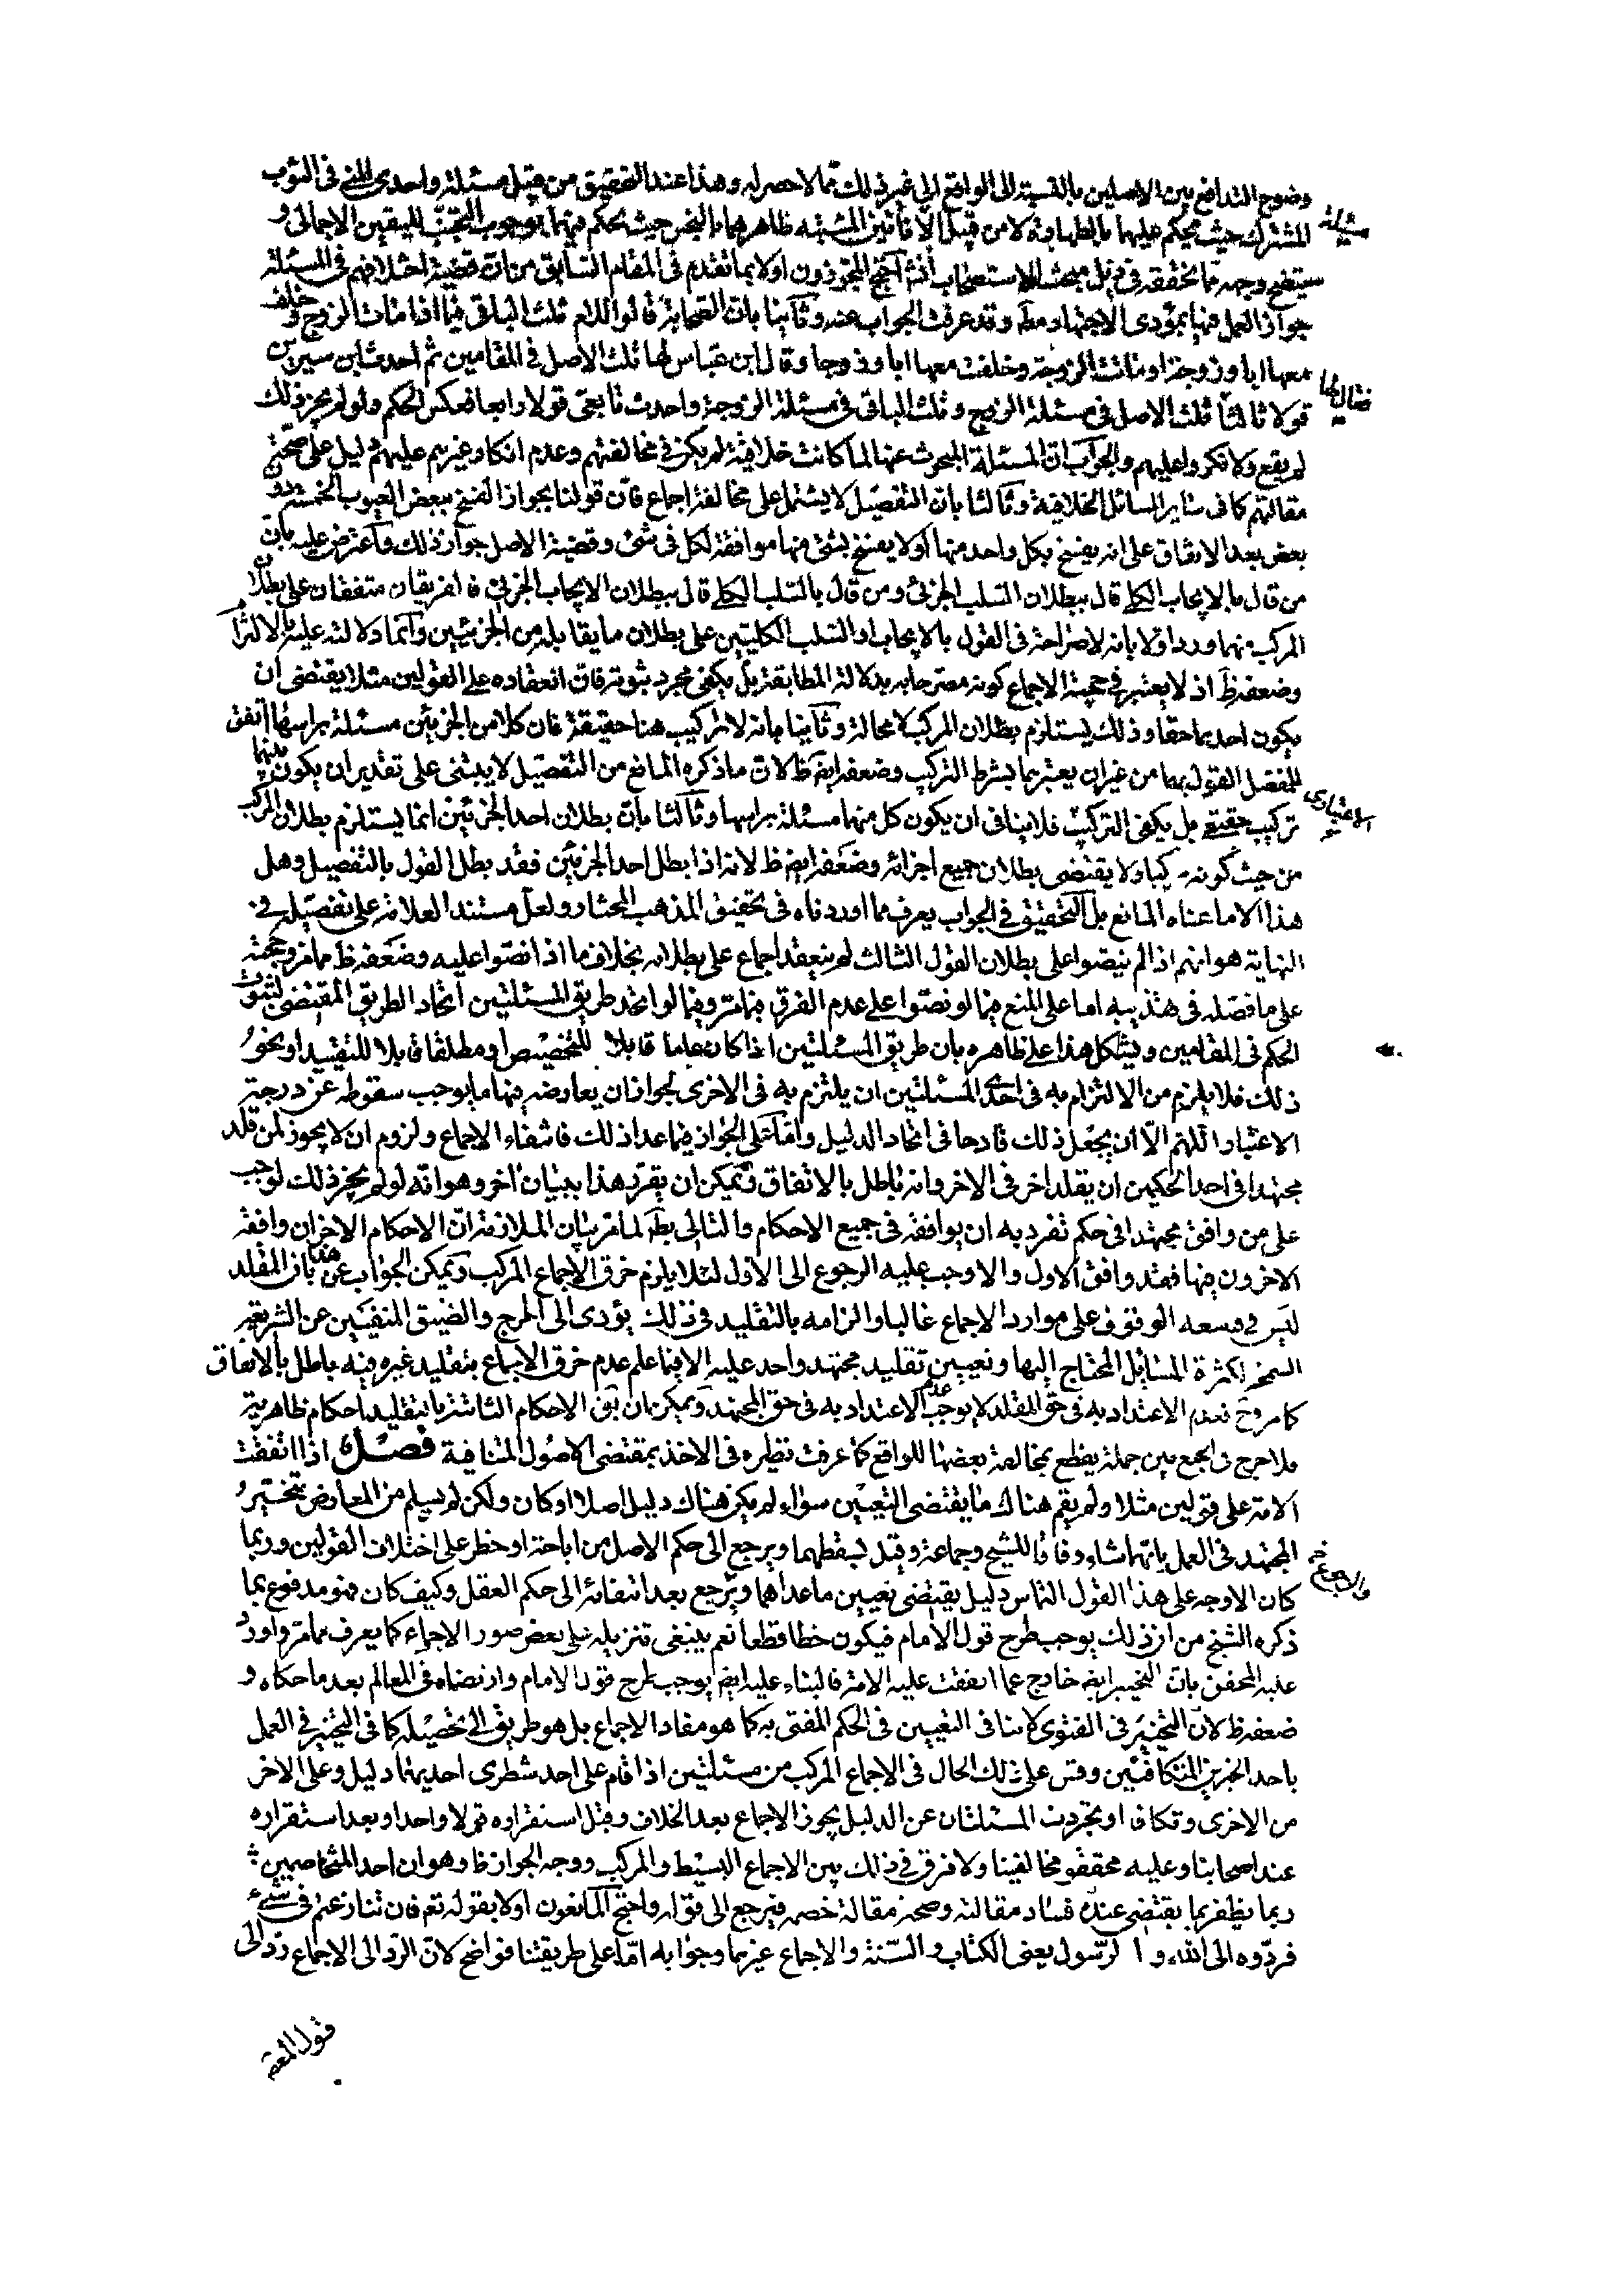 وضوح التدافع بين الاصلين بالنسبة الى الواقع الى غير ذلك مما لا حصر له وهذا عند التحقيق من قبيل مسئلة واجدى المنى فى الثوب
المشترك حيث يحكم عليهما بالطهارة لا من قبيل الانائين المشتبه ظاهرهما بالنجس حيث يحكم فيهما بوجوب التجنب لليقين الاجمالى و
سيتضح وجهه مما نحققه فى ذيل مبحث الاستصحاب انش احتج المجوزون اولا بما تقدم فى المقام السابق من ان قضية اختلافهم فى المسئلة
جواز العمل فيها بمؤدى الاجتهاد مطه وقد عرفت الجواب عنه وثانيا بان الصحابة قالوا للام ثلث الباقى فيما اذا مات الزوج وخلف
معها ابا وزوجة او ماتت الزوجة وخلفت معها ابا وزوجا وقال ابن عباس لها ثلث الاصل فى المقامين ثم احدث ابن سيرين
قولا ثالثا ثلث الاصل فى مسئلة الزوج وثلث الباقى فى مسئلة الزوجة واحدث تابعى قولا رابعا فعكس الحكم ولو لم يجز ذلك
لم يقع ولانكروا عليهم والجواب ان المسئلة المبحوث عنها لما كانت خلافية لم يكن فى مخالفتهم وعدم انكار غيرهم عليهم دليل على صحة
مقالتهم كما فى ساير المسائل الخلافية وثالثا بان التفصيل لا يشتمل على مخالفة اجماع فان قولنا بجواز الفسخ ببعض العيوب الخمسة دون
بعض بعد الاتفاق على انه يفسخ بكل واحد منها او لا يفسخ بشئ منها موافقة لكل فى شئ وقضية الاصل جواز ذلك واعترض عليه بان
من قال بالايجاب الكلى قال ببطلان السلب الجزئى ومن قال بالسلب الكلى قال ببطلان الايجاب الجزئى فالفريقان متفقان على بطلان
المركب منهما ورد اولا بانه لا صراحة فى القول بالايجاب او السلب الكليين على بطلان ما يقابله من الجزئيين وانما دلالته عليه بالالتزام
وضعفه ظ اذ لا يعتبر فى حجية الاجماع كونه مصرحا به بدلالة المطابقة بل يكفى مجرد ثبوته فان انعقاده على القولين مثلا يقتضى ان
يكون احدهما حقا وذلك يستلزم بطلان المركب لا محالة وثانيا بانه لا تركيب هنا حقيقة فان كلا من الجزئين مسئلة براسها اتفق
للمفصل القول بهما من غير ان يعتبرهما بشرط التركيب وضعفه ايض ظ لان ما ذكره المانع من التفصيل لا يبتنى على تقدير ان يكون بينهما
تركيب حقيقى بل يكفى التركيب الاعتبارى فلا ينافى ان يكون كل منهما مسئلة براسها وثالثا بان بطلان احد الجزئين انما يستلزم بطلان المركب
من حيث كونه مركبا ولا يقتضى بطلان جميع اجزائه وضعفه ايض ظ لانه اذا بطل احد الجزئين فقد بطل القول بالتفصيل وهل
هذا الا ما عناه المانع بل التحقيق فى الجواب يعرف مما اوردناه فى تحقيق المذهب المختار ولعل مستند العلامة على تفصيله فى
النهاية هو انهم اذا لم ينصوا على بطلان القول الثالث لم ينعقد اجماع على بطلانه بخلاف ما اذا نصوا عليه وضعفه ظ مما مر وحجته
على ما فصله فى تهذيبه اما على المنع فيما لو نصوا على عدم الفرق فما مر وفيما لو اتحد طريق المسئلتين اتحاد الطريق المقتضى لثبوت
الحكم فى المقامين ويشكل هذا على ظاهره بان طريق المسئلتين اذا كان عاما قابلا للتخصيص او مطلقا قابلا للتقييد او نحو
ذلك فلا يلزم من الالتزام به فى احد المسئلتين ان يلتزم به فى الاخرى لجواز ان يعارضه فيها ما يوجب سقوطه عن درجة
الاعتبار اللهم الا ان يجعل ذلك قادحا فى اتحاد الدليل واما على الجواز فيما عدا ذلك فانتفاء الاجماع ولزوم ان لا يجوز لمن قلد
مجتهدا فى احد الحكمين ان يقلد اخر فى الاخر وانه باطل بالاتفاق ويمكن ان يقرر هذا ببيان اخر وهو انه لو لم يجز ذلك لوجب
على من وافق مجتهدا فى حكم تفرد به ان يوافقه فى جميع الاحكام والتالى بط لما مر بيان الملازمة ان الاحكام الاخر ان وافقه
الاخرون فيها فقد وافق الاول والا وجب عليه الرجوع الى الاول لئلا يلزم خرق الاجماع المركب ويمكن الجواب عن هذا بان المقلد
ليس فى وسعه الوقوف على موارد الاجماع غالبا والزامه بالتقليد فى ذلك يؤدى الى الحرج والضيق المنفيين عن الشريعة
السمحة لكثرة المسائل المحتاج اليها وتعيين تقليد مجتهد واحد عليه الا فيما علم عدم خرق الاجماع بتقليد غيره فيه باطل بالاتفاق
كما مر وح فعدم الاعتداد به فى حق المقلد لا يوجب عدم الاعتداد به فى حق المجتهد ويمكن بان بق الاحكام الثابتة بالتقليد احكام ظاهرية
فلا حرج فى الجمع بين جملة يقطع بمخالفة بعضها للواقع كما عرفت نظيره فى الاخذ بمقتضى الاصول المتنافية فصل اذا اتفقت
الامة على قولين مثلا ولم يقم هناك ما يقتضى التعيين سواء لم يكن هناك دليل اصلا او كان ولكن لم يسلم من المعارض تخير
المجتهد فى العمل بايهما شاء وفاقا للشيخ وجماعة وقيل يسقطهما ويرجع الى حكم الاصل من اباحة او حظر على اختلاف القولين وربما
كان الاوجه على هذا القول التماس دليل يقتضى تعيين ماعداهما ويرجع بعد انتفائه الى حكم العقل وكيف كان فهو مدفوع بما
ذكره الشيخ من ان ذلك يوجب طرح قول الامام فيكون خطا قطعا نعم ينبغى تنزيله على بعض صور الاجماع كما يعرف مما مر واورد
عليه المحقق بان التخيير ايض خارج عما اتفقت عليه الامة فالبناء عليه ايض يوجب طرح قول الامام وارتضاه فى المعالم بعد ما حكاه و
ضعفه ظ لان التخيير فى الفتوى لا ينافى التعيين فى الحكم المفتى به كما هو مفاد الاجماع بل هو طريق الى تحصيله كما فى التخيير فى العمل
باحد الخبرين المتكافئين وقس على ذلك الحال فى الاجماع المركب من مسئلتين اذا قام على احد شطرى احديهما دليل وعلى الاخر
من الاخرى وتكافا او تجردت المسئلتان عن الدليل يجوز الاجماع بعد الخلاف وقبل استقراره قولا واحدا وبعد استقراره
عند اصحابنا وعليه محققو مخالفينا ولا فرق فى ذلك بين الاجماع البسيط والمركب ووجه الجواز ظ وهو ان احد المتخاصمين
ربما يظفر بما يقتضى عنده فساد مقالته وصحة مقالة خصمه فيرجع الى قوله واحتج المانعون اولا بقوله تع فان تنازعتم فى شئ
فردوه الى الله و الرسول يعنى الكتاب والسنة والاجماع غيرهما وجوابه اما على طريقتنا فواضح لان الرد الى الاجماع رد الى
قول المعصوم